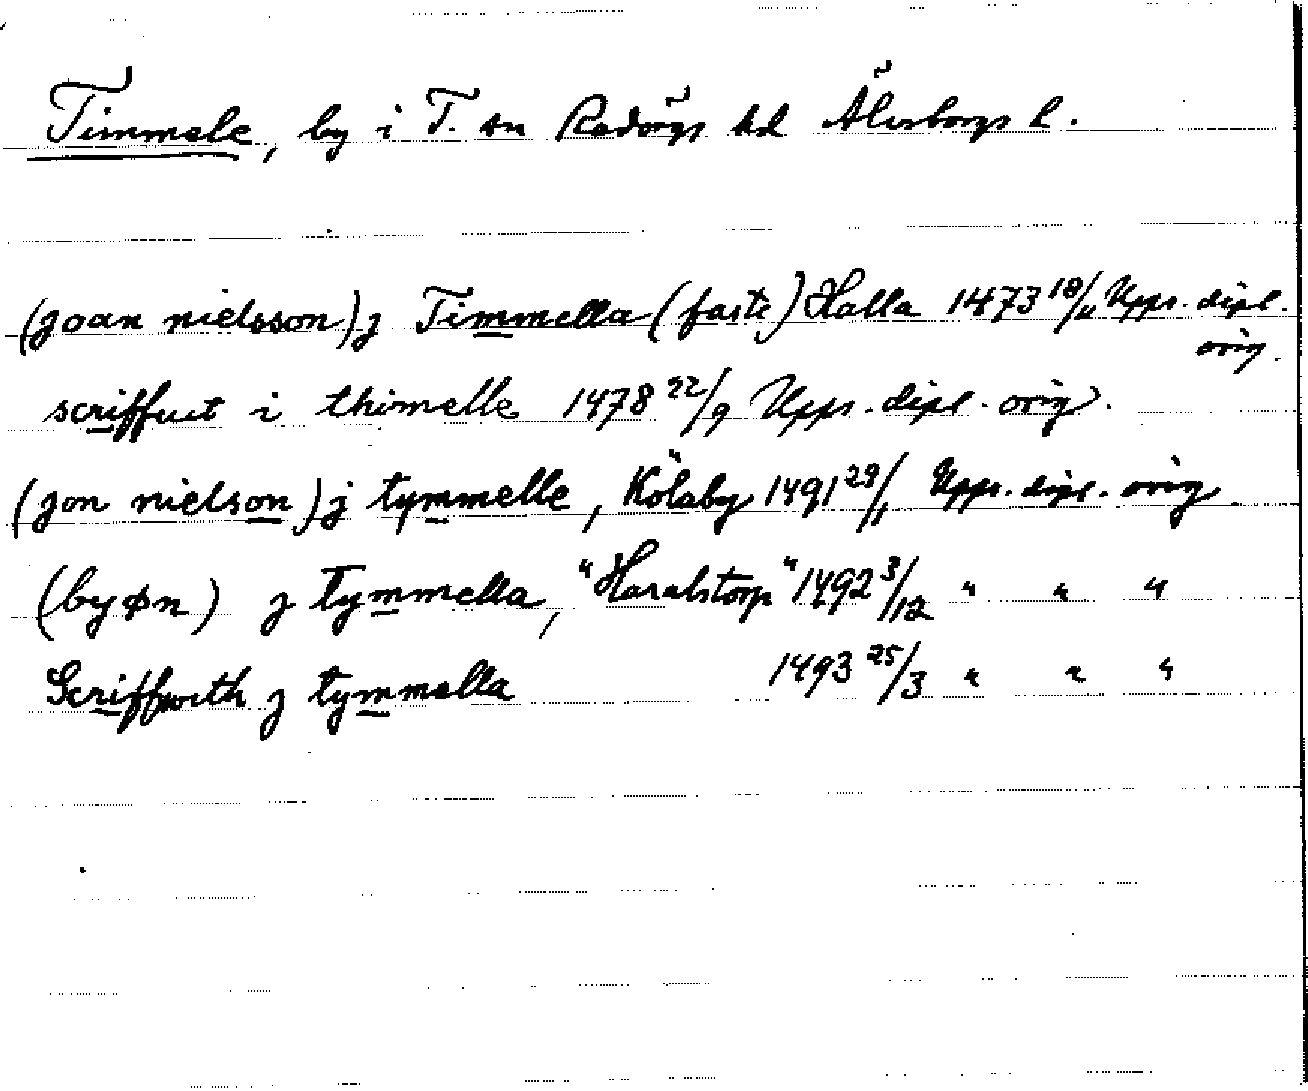 Timmele, by i T. sn Redvägs hd Älvsborgs l.
(joan nielsson) j Timmella (faste) Halla 1473 18/11 Upps. dipl. orig.
scriffuit i thimelle 1478 22/9 Upps. dipl. orig.
(jon nielson) j tymmelle, Kölaby 1491 29/1 Upps. dipl. orig
(byøn) j Tymmella, "Haralstorp" 1492 3/12 " " "
Scriffwith j tymmella 1493 25/3 " " "